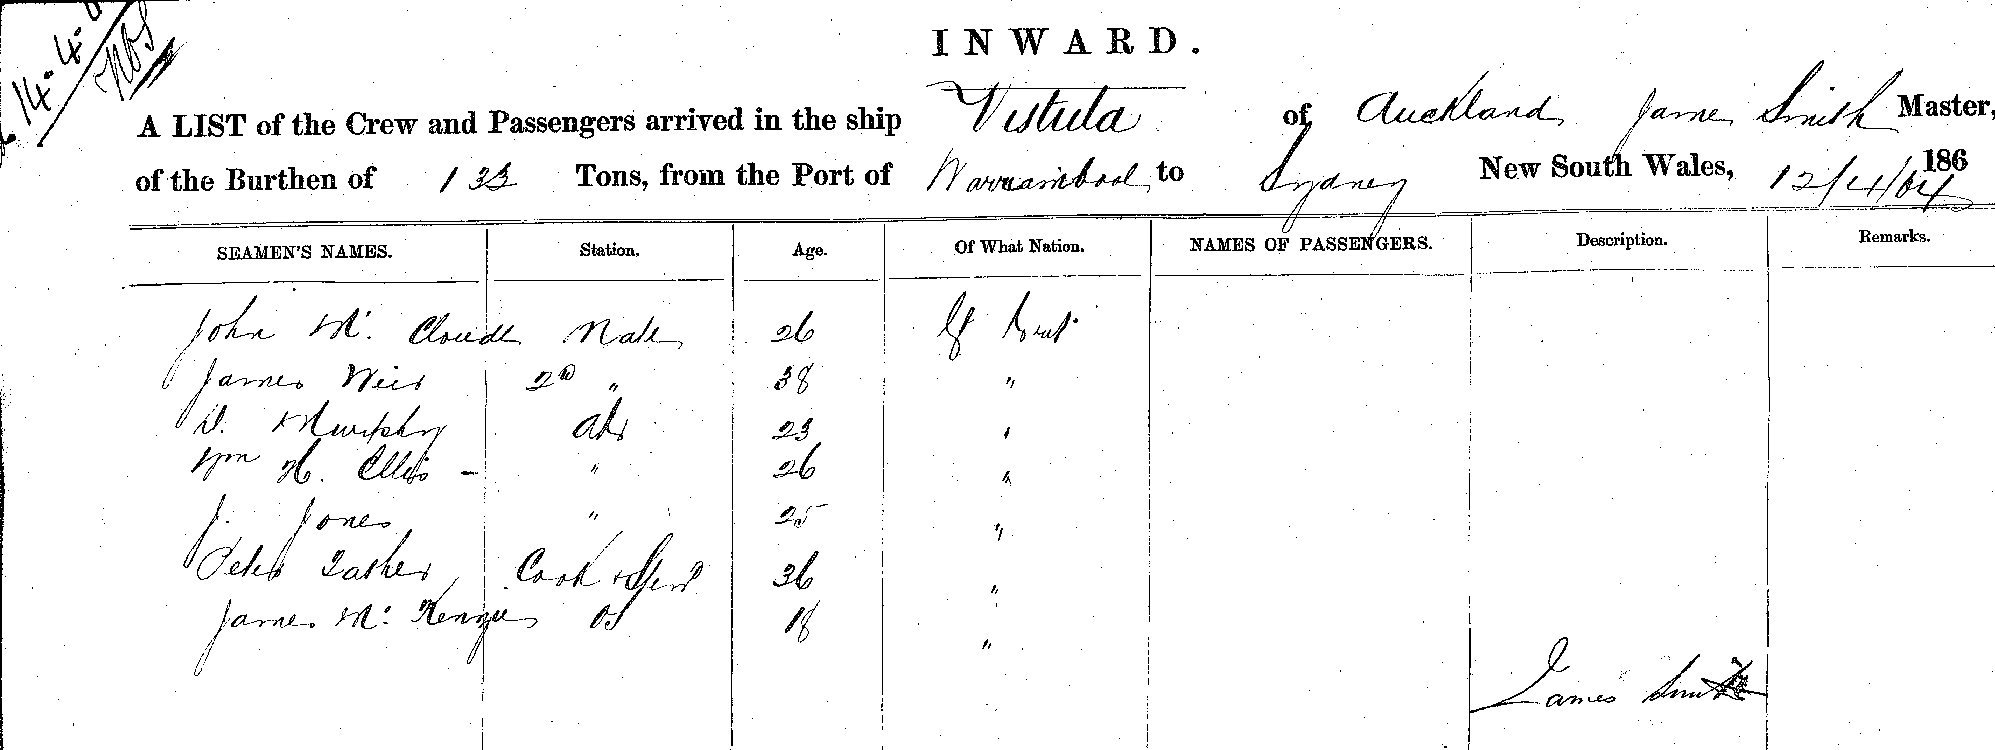 14.4.
INWARD.
A LIST of the Crew and Passengers arrived in the ship Vistula of Auckland James Smith Master,
of the Burthen of 133 Tons, from the Port of Warrnambool to Sydney New South Wales, 12/4/64 186
SEAMEN'S NAMES. Station. Age. Of What Nation. NAMES OF PASSENGERS. Description. Remarks.
John Mc. Cloude Mate 26
James Weir 2D " 38 "
D. Murphy ABs 23 "
Wm H. Ellis - " 26 "
J. Jones " 25 "
Peter Cook & Stewd 36 "
James Mc: Kenzie OS 18 "
James Smith